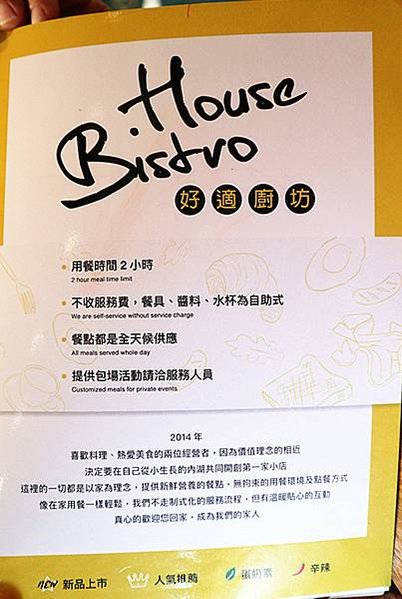 House
Bistro
好適廚坊
• 用餐時間 2 小時
2 hour meal time limit
• 不收服務費，餐具、醬料、水杯為自助式
We are self-service without service charge
• 餐點都是全天候供應
All meals served whole day
• 提供包場活動請洽服務人員
Customized meals for private events
2014 年
喜歡料理、熱愛美食的兩位經營者，因為價值理念的相近
決定要在自己從小生長的內湖共同開創第一家小店
這裡的一切都是以家為理念，提供新鮮營養的餐點，無拘束的用餐環境及點餐方式
像在家用餐一樣輕鬆，我們不走制式化的服務流程，但有溫暖貼心的互動
真心的歡迎您回家，成為我們的家人
NEW 新品上市 人氣推薦 蛋奶素 辛辣